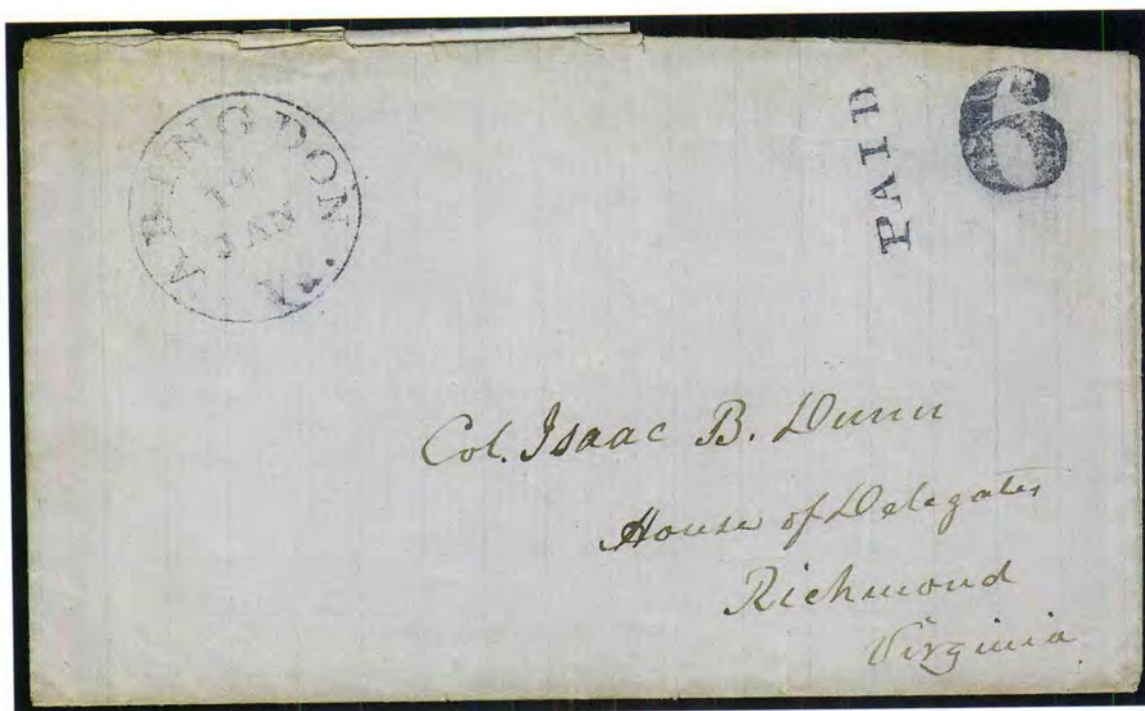 ABINGDON
19
JAN
Va.
PAID
6
Col. Isaac B. Dunn
House of Delegates
Richmond
Virginia